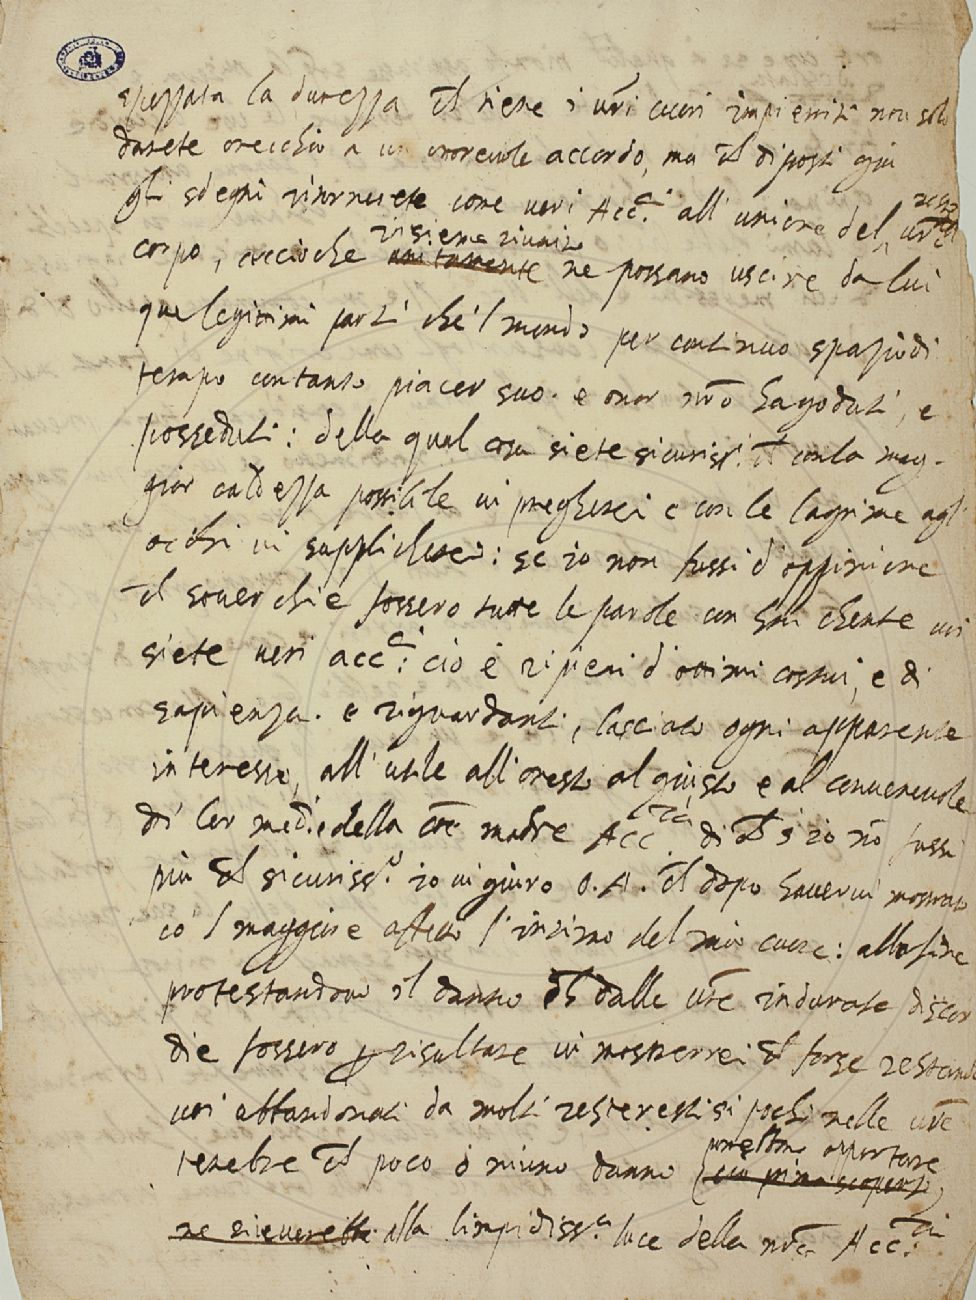 spezzata la durezza ch tiene i vri cuori impietriti non solo
darete orecchio a un onorevole accordo, ma ch diposti giu
gli sdegni ritornerete come veri Acc.ci all' unione del vro
corpo, accioche insieme riuniti unitamente ne possano uscire da lui
que legittimi parti che 'l mondo per continuo spazio di
tempo con tanto piacer suo. e onor nro ha goduti, e
posseduti: della qual cosa siete sicuriss.i ch con la mag-
gior caldezza possibile vi pregherei e con le lagrime agl'
occhi vi supplicherei: se io non fussi d'oppinione
ch soverchie fossero tutte le parole con
siete veri acc.ci cio è ripieni d'ottimi costumi, e di
sapienza. e riguardanti, lasciato ogni apparente
interesse, all'utile all'onesto al giusto e al convenevole
di lor med.i e della com madre Acc.ia di ch s'io no fussi
piu ch sicuriss.o io vi giuro O.A. ch dopo havervi mostrato
co 'l maggiore affetto l'intimo del mio cuore: alla fine
protestandovi il danno ch dalle vre indurate discor
die fossero p risultare vi mostrerrei ch forse restando
voi abbandonati da molti resteresti si pochi nelle vre
tenebre ch poco o niuno danno potresti apportare
ne ricevereste alla limpidiss.a luce della nra Acc.ia